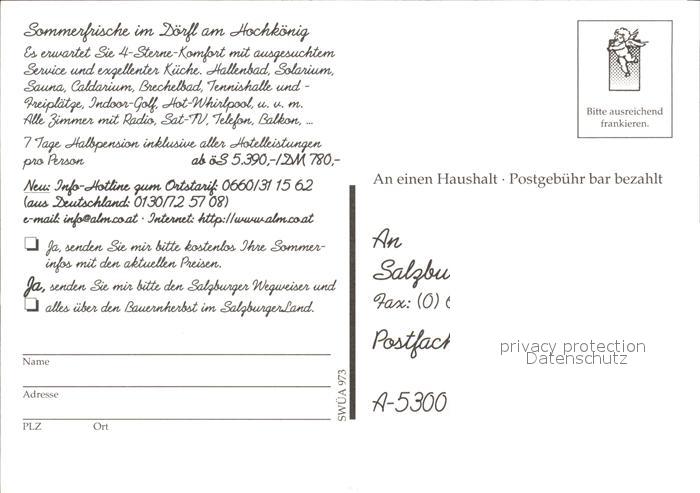 Sommerfrische im Dörfl am Hochkönig
Es erwartet Sie 4-Sterne-Komfort mit ausgesuchtem
Service und exzellenter Küche. Hallenbad, Solarium,
Sauna, Caldarium, Brechelbad, Tennishalle und -
Freiplätze, Indoor-Golf, Hot-Whirlpool, u. v. m.
Alle Zimmer mit Radio, Sat-TV, Telefon, Balkon, ...
7 Tage Halbpension inklusive aller Hotelleistungen
pro Person ab öS 5.390,-/DM 780,-
Neu: Info-Hotline zum Ortstarif: 0660/31 15 62
(aus Deutschland: 0130/72 57 08)
e-mail: info@alm.co.at · Internet: http://www.alm.co.at
Ja, senden Sie mir bitte kostenlos Ihre Sommer-
infos mit den aktuellen Preisen.
Ja, senden Sie mir bitte den Salzburger Wegweiser und
alles über den Bauernherbst im SalzburgerLand.
Name
Adresse
PLZ Ort
SWÜA 973
Bitte ausreichend
frankieren.
An einen Haushalt · Postgebühr bar bezahlt
An
Salzbu
Fax: (0)
Postfach
A-5300
privacy protection
Datenschutz